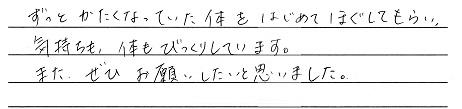 ずっと かたくなっていた体を はじめて ほぐしてもらい、
気持ちも、体も びっくりしています。
また、ぜひ お願いしたいと思いました。